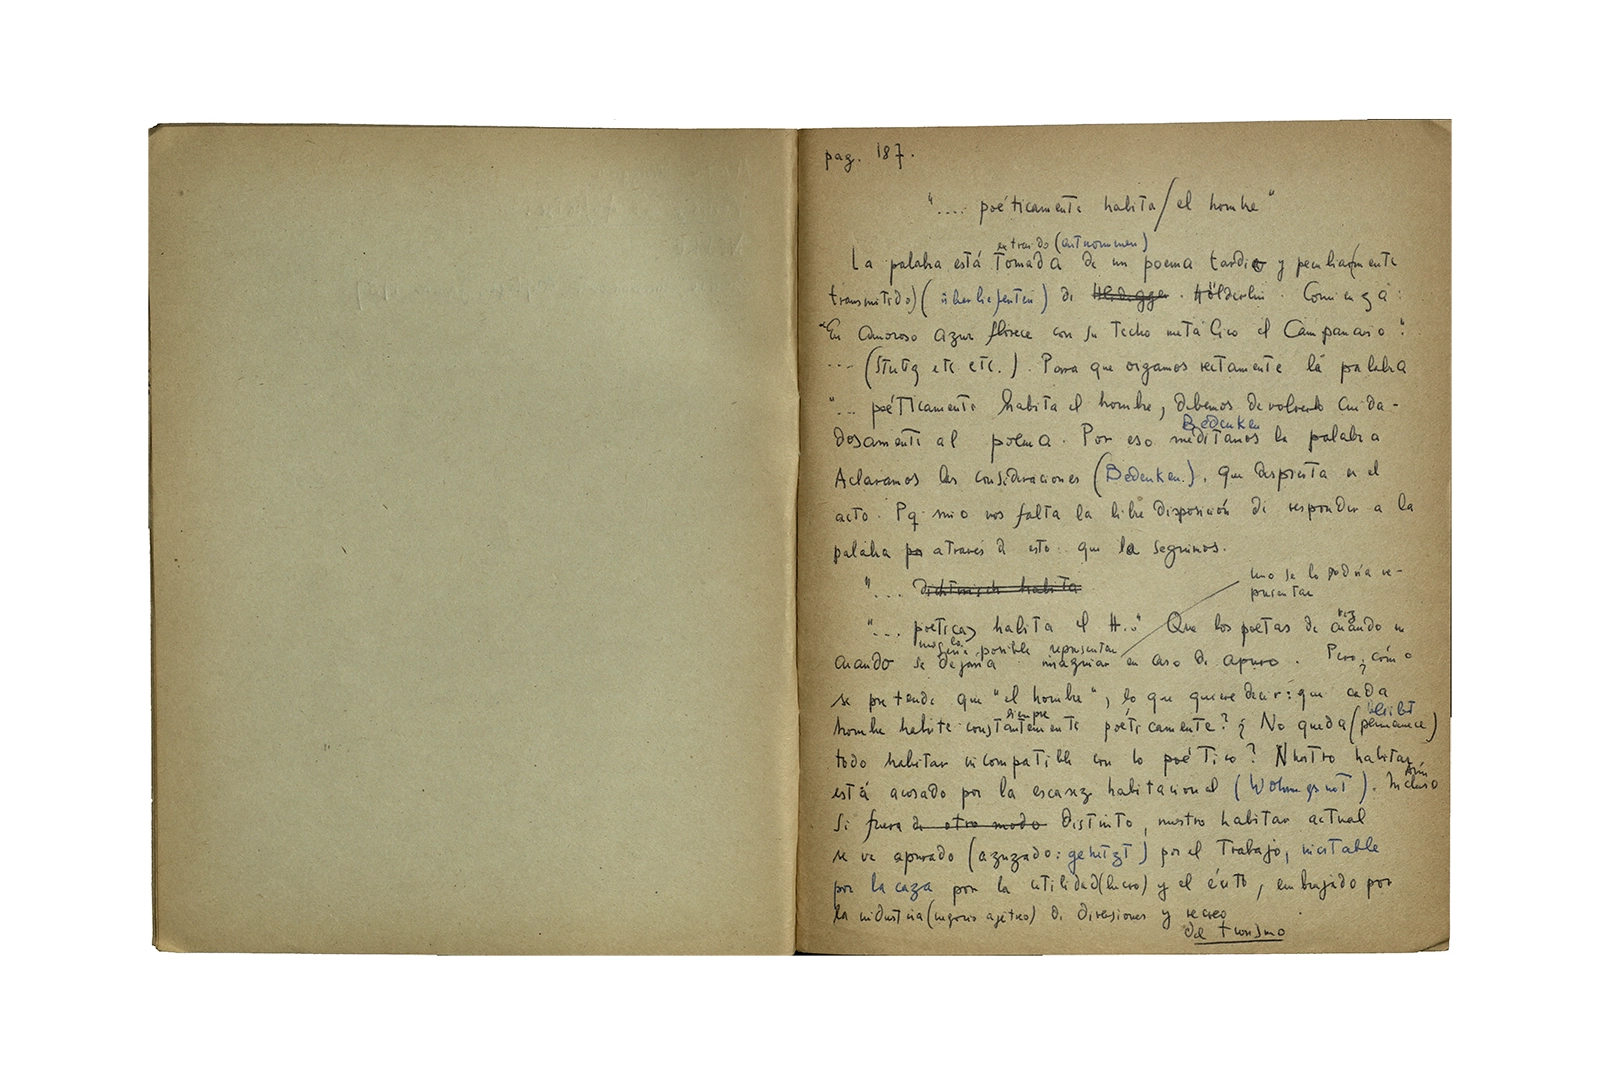 pag. 187.
".... poéticamente habita/el hombre"
extraido (entnommen)
La palabra está tomada de un poema tardio y peculiarmente
transmitido) (überlieferten) de Heidegger. Hölderlin. Comienza:
"En amoroso azur florece con su techo metálico el Campanario".
... (Stutg etc etc.). Para que oigamos rectamente la palabra
"... poéticamente habita el hombre, debemos devolverlo cuida-
dosamente al poema. Por eso meditamos la palabra
Bedenken
Aclaramos las consideraciones (Bedenken.), que despierta en el
acto. Pq sino nos falta la libre disposición de responder a la
palabra po a través d esto: que la seguimos.
"... dichterisch habita
uno se lo podría re-
presentar
"... poetica) habita el H..." Que los poetas de cuando en
vez
cuando se dejaria imaginar en caso de apuro. Pero, ¿cómo
posible representar
se pretende que "el hombre", lo que quiere decir: que cada
hombre habite constantemente poéticamente? ¿No queda (permanece)
siempre
bleibt
todo habitar incompatible con lo poético? Nuestro habitar
está acosado por la escasez habitacional (Wohnungsnot). Incluso
Aún
si fuera de otro modo distinto, nuestro habitar actual
se ve apurado (azuzado: gehetzt) por el Trabajo, inestable
por la caza por la utilidad (lucro) y el éxito, embrujado por
la industria () de diversiones y recreo
del turismo